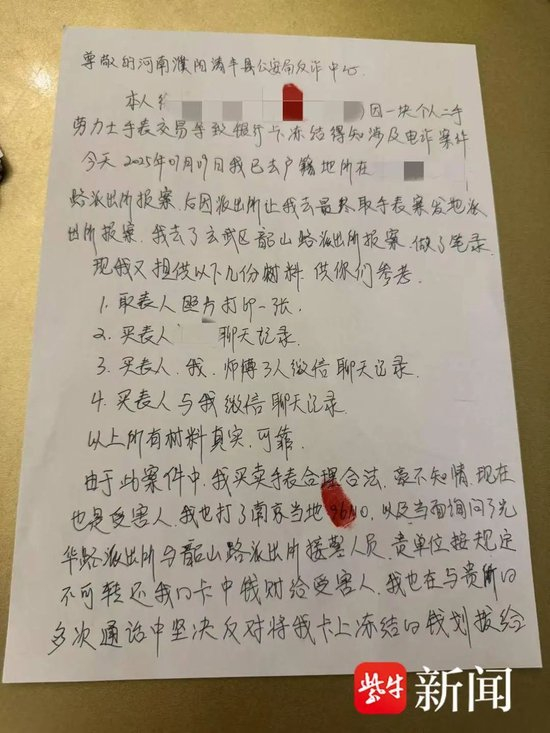 尊敬的河南濮阳清丰县公安局反诈中心.
本人(            )因一块个人二手
劳力士手表交易导致银行卡冻结得知涉及电诈案件
今天2025年07月09日我已去户籍地所在
路派出所报案.后因派出所让我去最终取手表案发地派
出所报案.我去了玄武区韶山路派出所报案.做了笔录.
现我又提供以下几份材料.供你们参考.
1. 取表人照片打印一张.
2. 买表人      聊天记录.
3. 买表人、我、师傅3人微信聊天记录.
4. 买表人与我微信聊天记录.
以上所有材料真实.可靠.
由于此案件中.我买卖手表合理合法.毫不知情.现在
也是受害人.我也打了南京当地96110.以及当面询问了光
华路派出所与韶山路派出所接警人员.贵单位按规定
不可转还我口卡中钱财给受害人.我也在与贵所口
多次通话中坚决反对将我卡上冻结口钱划拨给
紫牛新闻